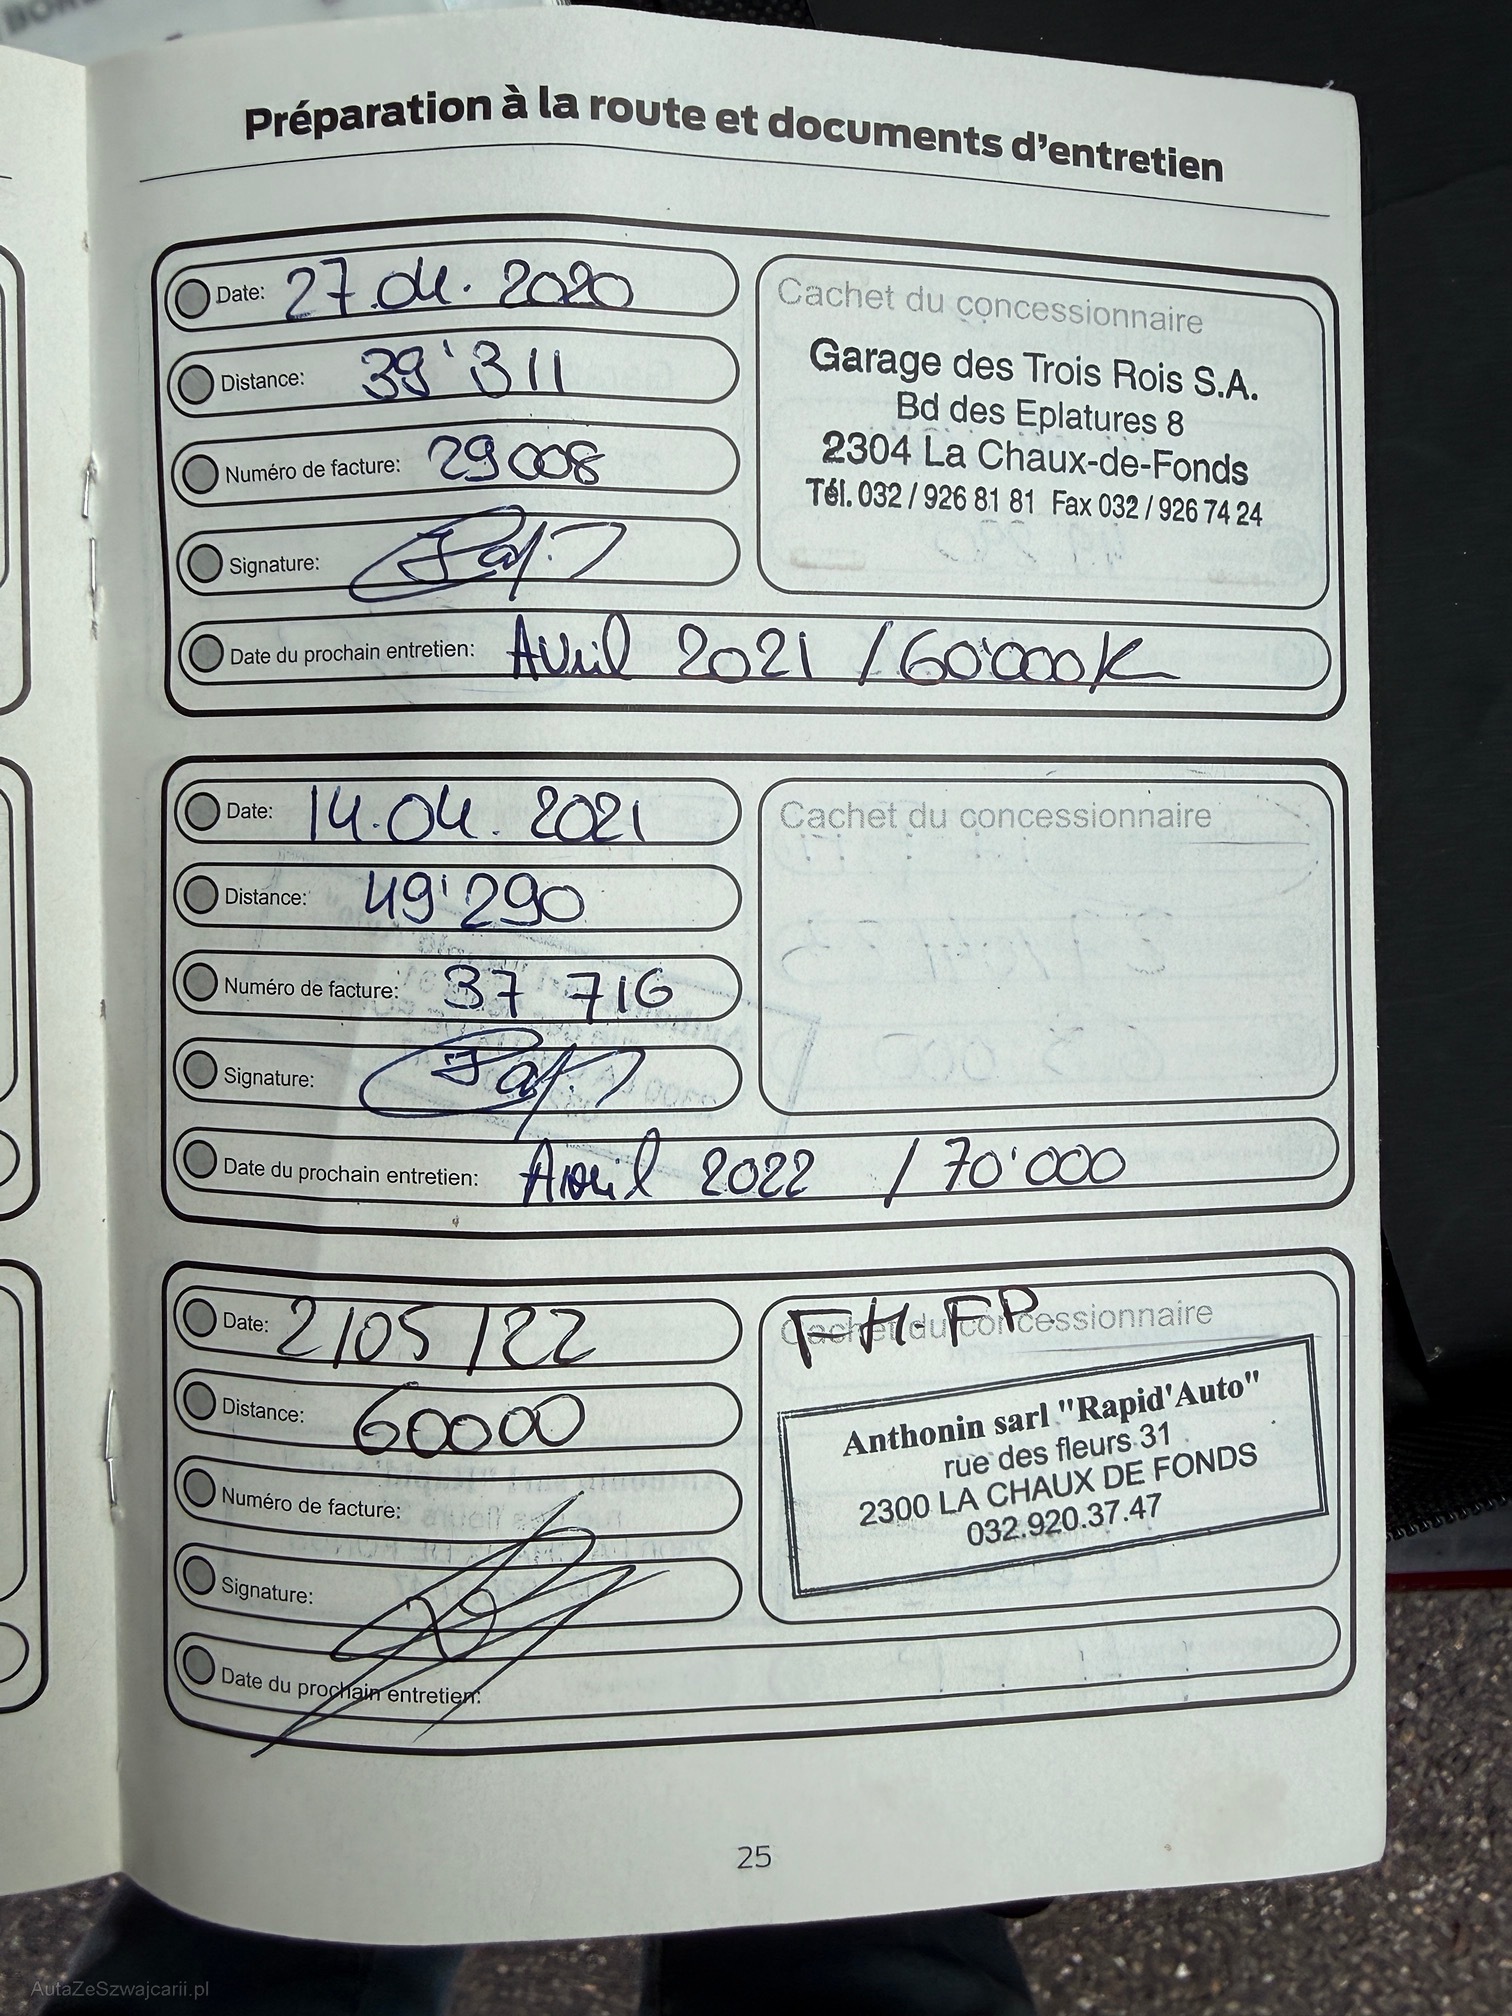 Préparation à la route et documents d'entretien
Date: 27.04.2020
Distance: 39'311
Numéro de facture: 29008
Signature:
Date du prochain entretien: Avril 2021 / 60'000K
Cachet du concessionnaire
Garage des Trois Rois S.A.
Bd des Eplatures 8
2304 La Chaux-de-Fonds
Tél. 032 / 926 81 81 Fax 032 / 926 74 24
Date: 14.04.2021
Distance: 49'290
Numéro de facture: 37 716
Signature:
Date du prochain entretien: Avril 2022 / 70'000
Cachet du concessionnaire
Date: 2/05/22
Distance: 60000
Numéro de facture:
Signature:
Date du prochain entretien:
Cachet du concessionnaire
FH. FP.
Anthonin sarl "Rapid'Auto"
rue des fleurs 31
2300 LA CHAUX DE FONDS
032.920.37.47
25
AutaZeSzwajcarii.pl